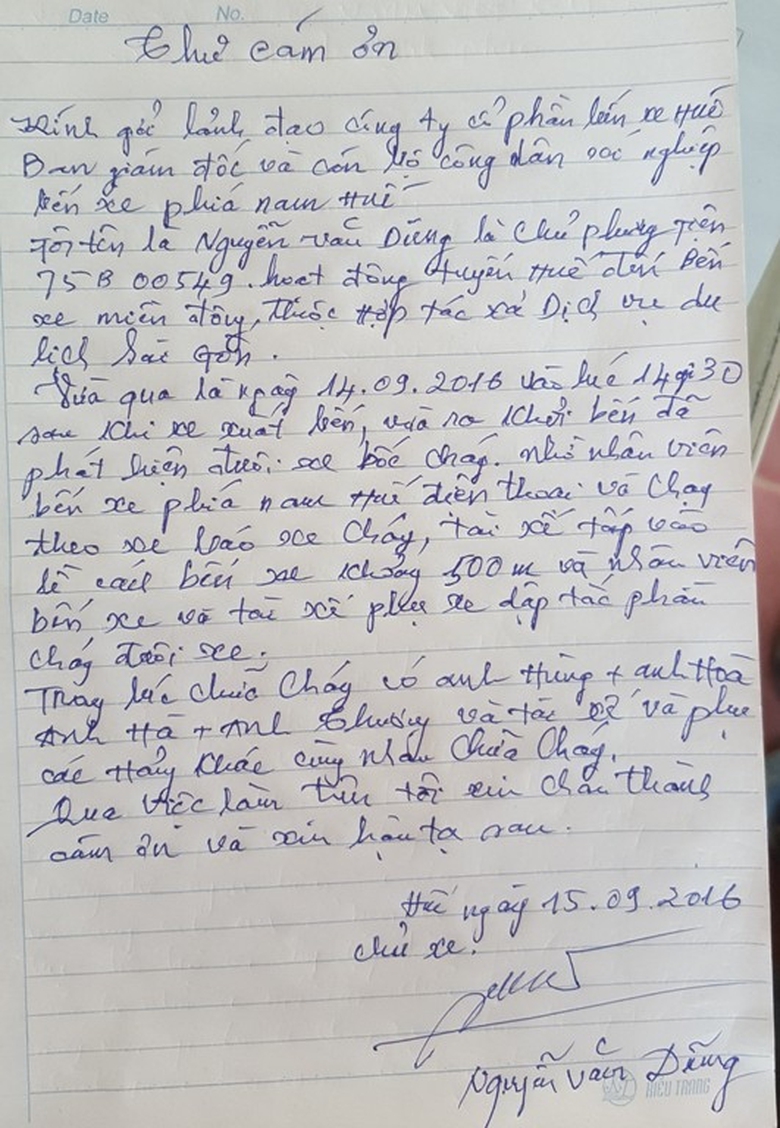 Date No.
Thư cảm ơn
Kính gởi lảnh đạo công ty cổ phần bến xe Huế
Ban giám đốc và cán bộ công dân xí nghiệp
bến xe phiá nam Huế
Tôi tên là Nguyễn Văn Dũng là Chủ phương tiện
75B 00549. hoạt động tuyến Huế đến Bến
xe miền đông, thuộc Hợp tác xả Dịch vụ du
lịch Sài Gòn.
Vừa qua là ngày 14.09.2016 vào lúc 14g30
sau khi xe xuất bến, vừa ra khỏi bến đã
phát hiện dưới xe bốc cháy. nhờ nhân viên
bến xe phiá nam Huế điện thoại và chạy
theo xe báo xe cháy, tài xế tấp vào
lề cách bến xe khoảng 500m và nhân viên
bến xe và tài xế phụ xe dập tắc phần
cháy dưới xe.
Trong lúc chửa cháy có anh Hùng + anh Hoà
Anh Hà + Anh Thương và tài xế và phụ
các Hảng khác cùng nhau chửa cháy.
Qua việc làm trên tôi xin chân thành
cảm ơn và xin hậu tạ sau.
Huế ngày 15.09.2016
chủ xe.
Nguyễn Văn Dũng
KIỀU TRANG